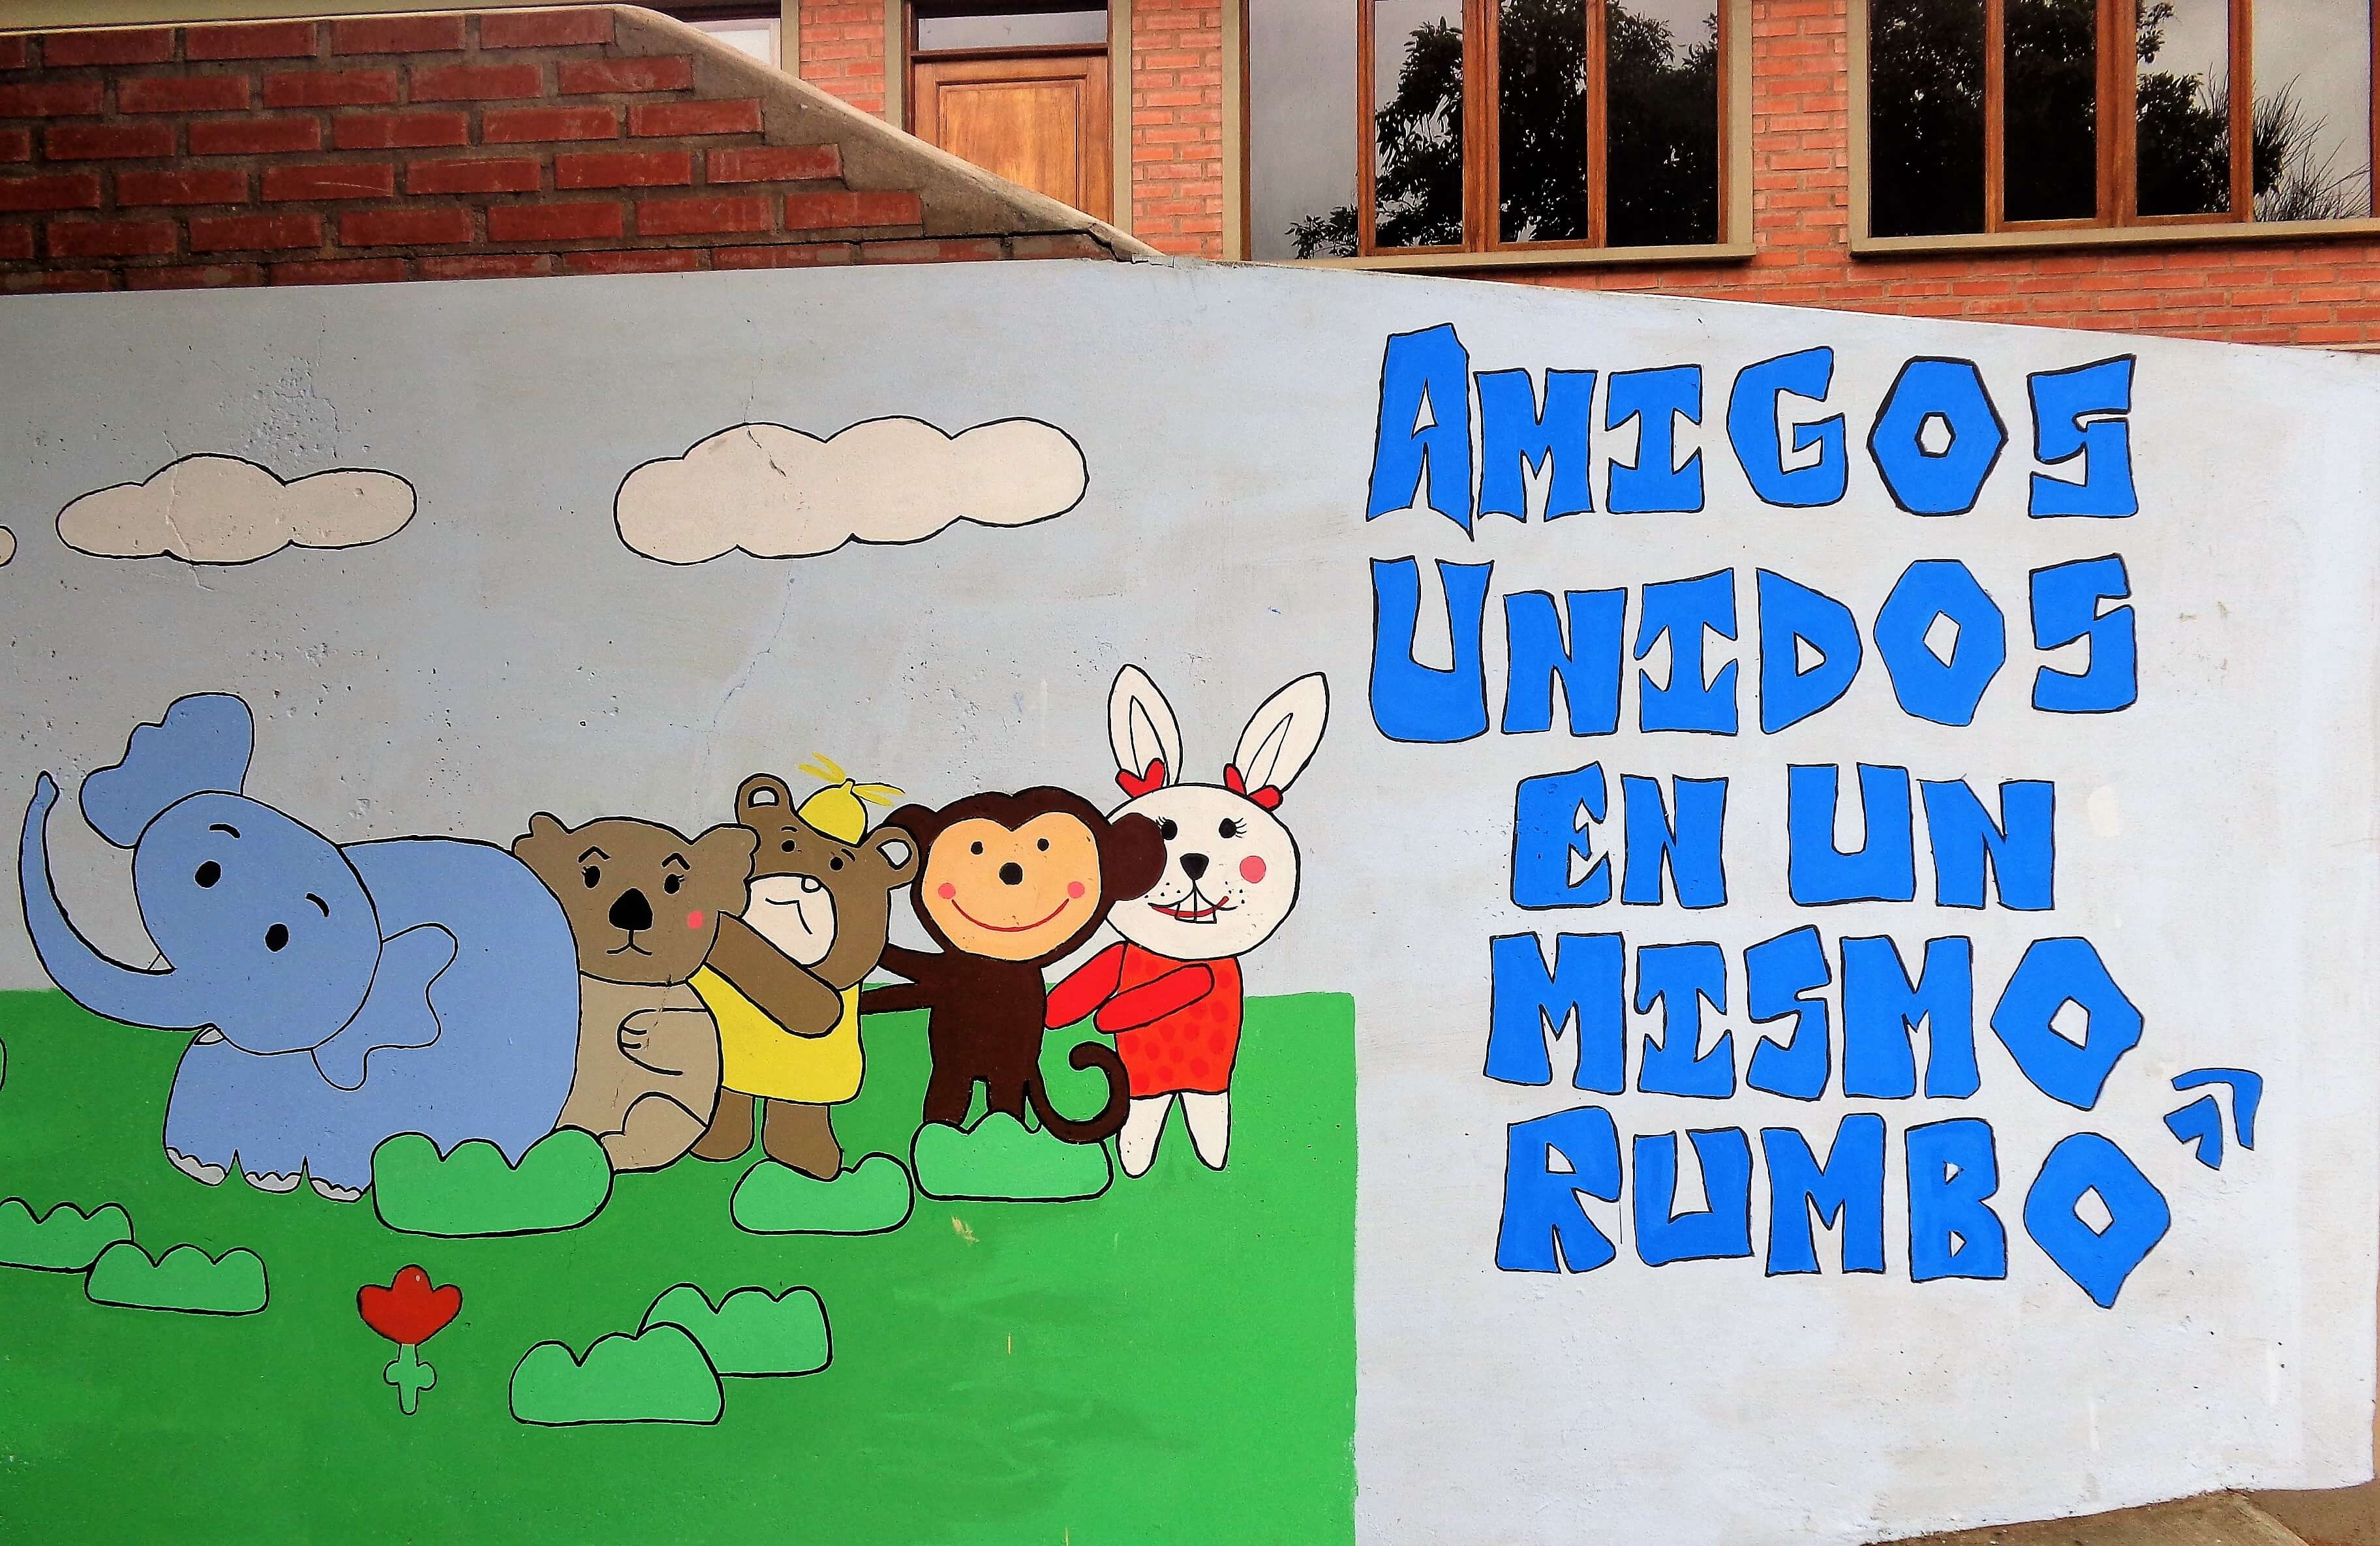 AMIGOS
UNIDOS
EN UN
MISMO
RUMBO"